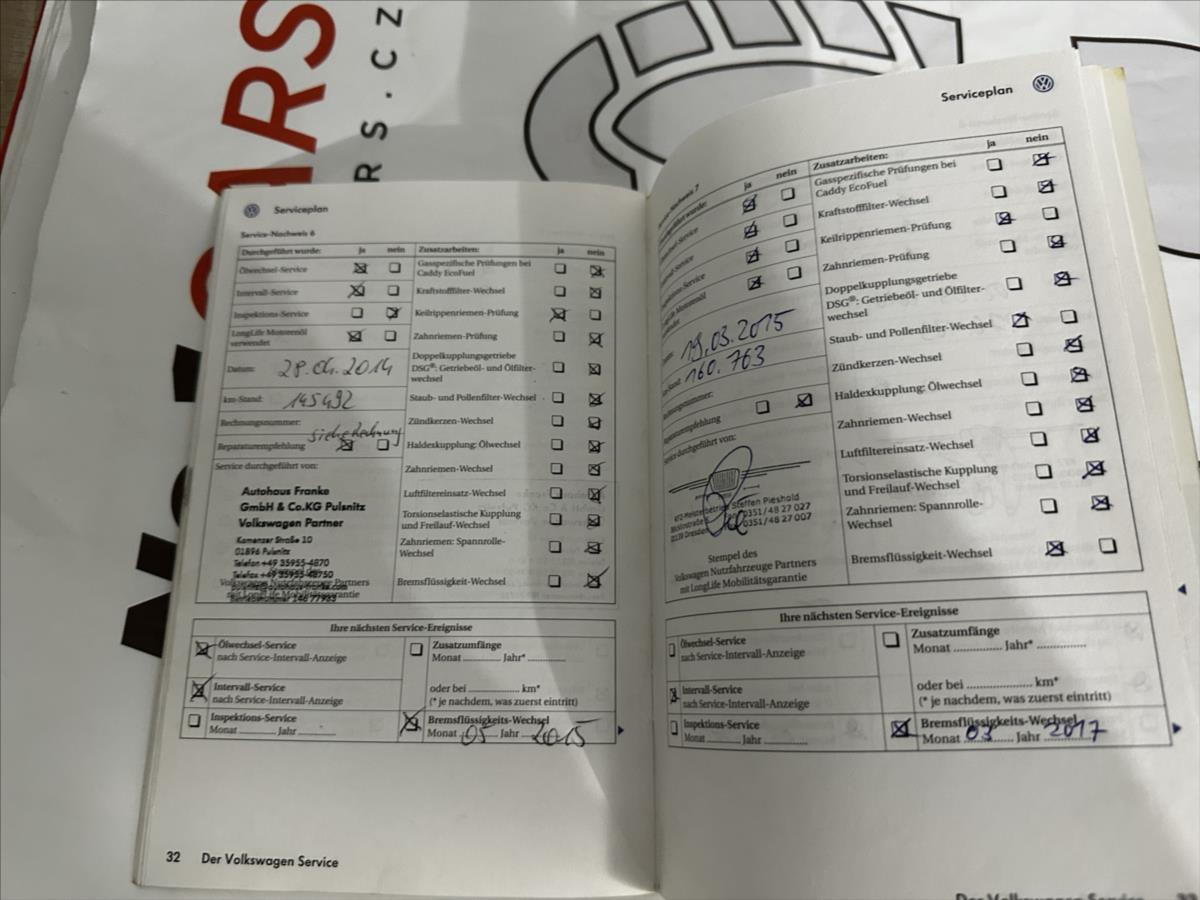 ARS
RS.CZ
Serviceplan
Service-Nachweis 6
Durchgeführt wurde: ja nein Zusatzarbeiten: ja nein
Ölwechsel-Service
Gasspezifische Prüfungen bei
Caddy EcoFuel
Intervall-Service
Kraftstofffilter-Wechsel
Inspektions-Service
Keilrippenriemen-Prüfung
LongLife Motorenöl
verwendet
Zahnriemen-Prüfung
Datum: 28.04.2014
Doppelkupplungsgetriebe
DSG®: Getriebeöl- und Ölfilter-
wechsel
km-Stand: 145492
Staub- und Pollenfilter-Wechsel
Rechnungsnummer: siehe Rechnung
Zündkerzen-Wechsel
Reparaturempfehlung
Haldexkupplung: Ölwechsel
Service durchgeführt von:
Zahnriemen-Wechsel
Autohaus Franke
GmbH & Co.KG Pulsnitz
Volkswagen Partner
Kamenzer Straße 10
01896 Pulsnitz
Telefon +49 35955-4870
Telefax +49 35955-48750
Volkswagen Nutzfahrzeuge Partners
mit LongLife Mobilitätsgarantie
Luftfiltereinsatz-Wechsel
Torsionselastische Kupplung
und Freilauf-Wechsel
Zahnriemen: Spannrolle-
Wechsel
Bremsflüssigkeit-Wechsel
Ihre nächsten Service-Ereignisse
Ölwechsel-Service
nach Service-Intervall-Anzeige
Zusatzumfänge
Monat ............ Jahr* ............
Intervall-Service
nach Service-Intervall-Anzeige
oder bei ................ km*
(* je nachdem, was zuerst eintritt)
Inspektions-Service
Monat .......... Jahr ..........
Bremsflüssigkeits-Wechsel
Monat 05 Jahr 2015
32 Der Volkswagen Service
Serviceplan
Nachweis 7
wurde: ja nein Zusatzarbeiten: ja nein
Gasspezifische Prüfungen bei
Caddy EcoFuel
Kraftstofffilter-Wechsel
Keilrippenriemen-Prüfung
Zahnriemen-Prüfung
Doppelkupplungsgetriebe
DSG®: Getriebeöl- und Ölfilter-
wechsel
19.03.2015
160.763
Staub- und Pollenfilter-Wechsel
Zündkerzen-Wechsel
Haldexkupplung: Ölwechsel
Zahnriemen-Wechsel
Luftfiltereinsatz-Wechsel
Torsionselastische Kupplung
und Freilauf-Wechsel
Zahnriemen: Spannrolle-
Wechsel
Bremsflüssigkeit-Wechsel
KFZ-Meisterbetrieb Steffen Pieshold
0351/48 27 027
0351/48 27 007
Stempel des
Volkswagen Nutzfahrzeuge Partners
mit LongLife Mobilitätsgarantie
Ihre nächsten Service-Ereignisse
Ölwechsel-Service
nach Service-Intervall-Anzeige
Zusatzumfänge
Monat ............ Jahr* ............
Intervall-Service
nach Service-Intervall-Anzeige
oder bei ................ km*
(* je nachdem, was zuerst eintritt)
Inspektions-Service
Monat .......... Jahr ..........
Bremsflüssigkeits-Wechsel
Monat 03 Jahr 2017
Der Volkswagen Service